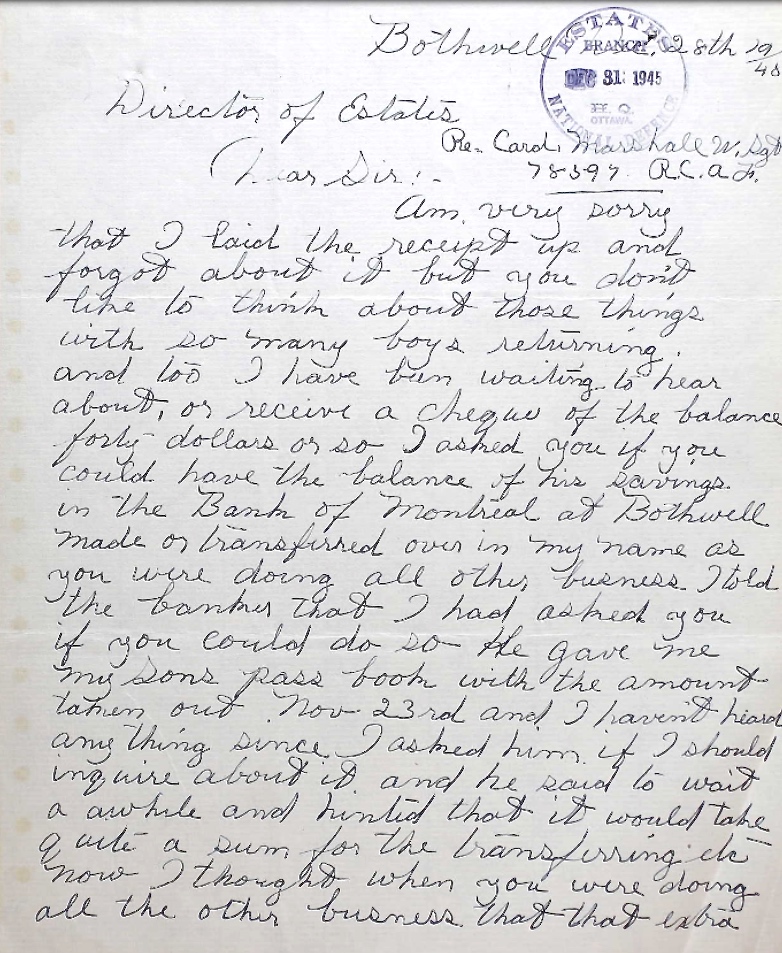 Bothwell Dec. 28th 19/45
ESTATES
BRANCH
DEC 31 1945
H.Q.
OTTAWA
NATIONAL DEFENCE
Director of Estates
Re- Card. Marshall W. Sgt
78397 R.C.A.F.
Dear Sir:-
Am very sorry
that I laid the receipt up and
forgot about it but you don't
like to think about those things
with so many boys returning.
and too I have ben waiting to hear
about, or receive a cheque of the balance
forty dollars or so I asked you if you
could have the balance of his savings
in the Bank of Montreal at Bothwell
made or transfirred over in my name as
you were doing all other busness. I told
the banker that I had asked you
if you could do so He gave me
my sons pass book with the amount
taken out Nov 23rd and I havent heard
anything since I asked him if I should
inquire about it and he said to wait
a awhile and hinted that it would take
quite a sum for the transfirring etc
now I thought when you were doing
all the other busness that that extra